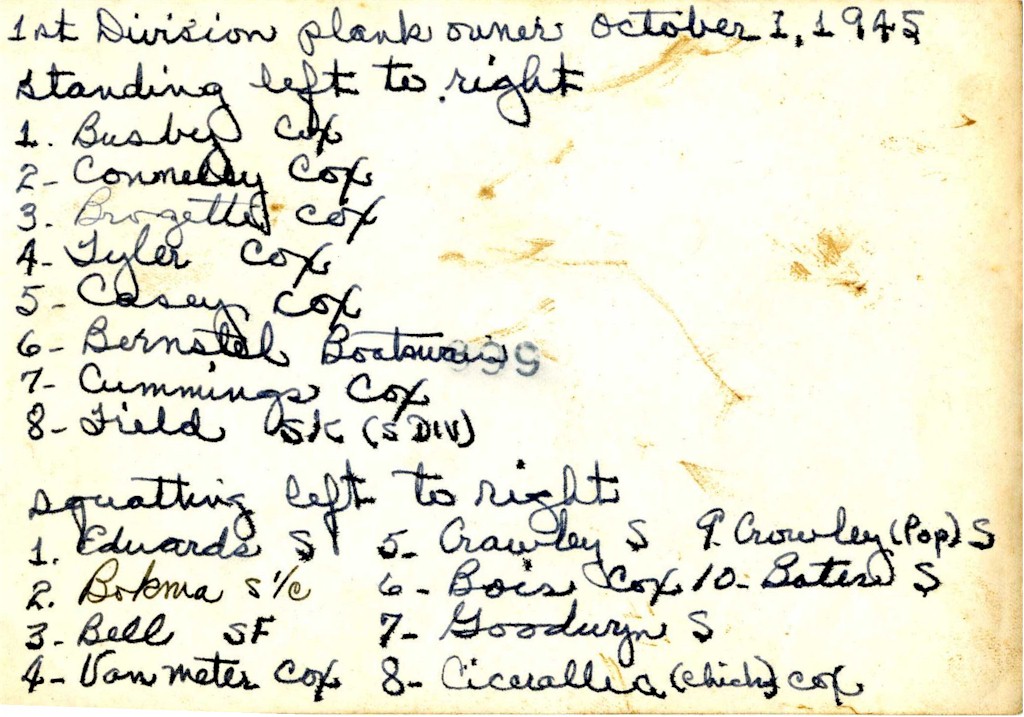 1st Division plank owner October 1, 1945
standing left to right
1. Busby Cox
2- Connelly Cox
3. Brozette Cox
4- Tyler Cox
5- Casey Cox
6- Boatswain 999
7- Cummings Cox
8- Field SK (S DIV)
squatting left to right
1. Edwards S 5- Crawley S 9. Crowley (Pop) S
2. Bokma S 1/c 6- Bois Cox 10- Bates S
3- Bell SF 7- Goodwyn S
4- Van meter Cox 8- (Chick) cox